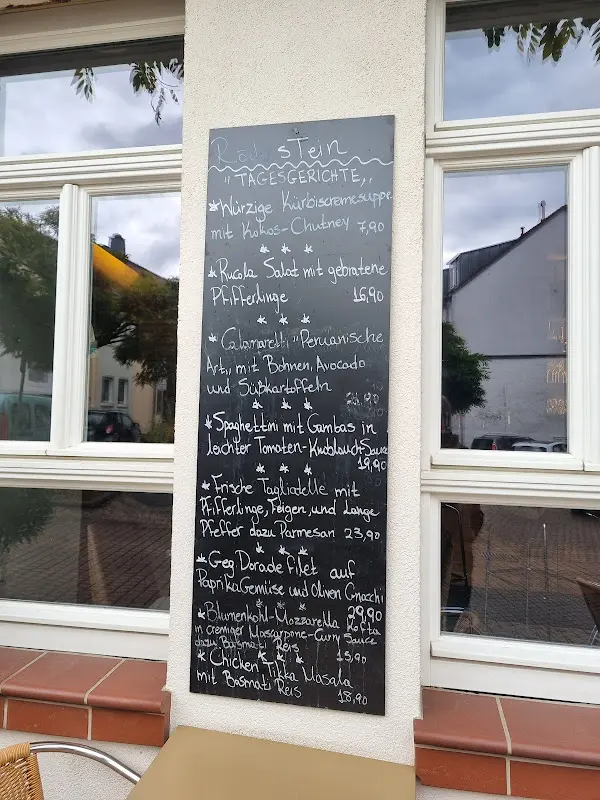 sTein
"TAGESGERICHTE"
* Würzige Kürbiscremesuppe
mit Kokos-Chutney 7,90
* * *
* Rucola Salat mit gebratene
Pfifferlinge 16,90
* * *
* Calamaretti "Peruanische
Art" mit Bohnen, Avocado
und Süßkartoffeln
* * *
* Spaghettini mit Gambas in
leichter Tomaten-Knoblauch-Sauce
19,90
* * *
* Frische Tagliatelle mit
Pfifferlinge, Feigen, und Lange
Pfeffer dazu Parmesan 23,90
* * *
* Geg. Dorade filet auf
Paprika Gemüse und Oliven Gnocchi
* * * 29,90
* Blumenkohl-Mozzarella Kofta
in cremiger Mascarpone-Curry Sauce
dazu Basmati Reis 15,90
* * *
* Chicken Tikka Masala
mit Basmati Reis 18,90